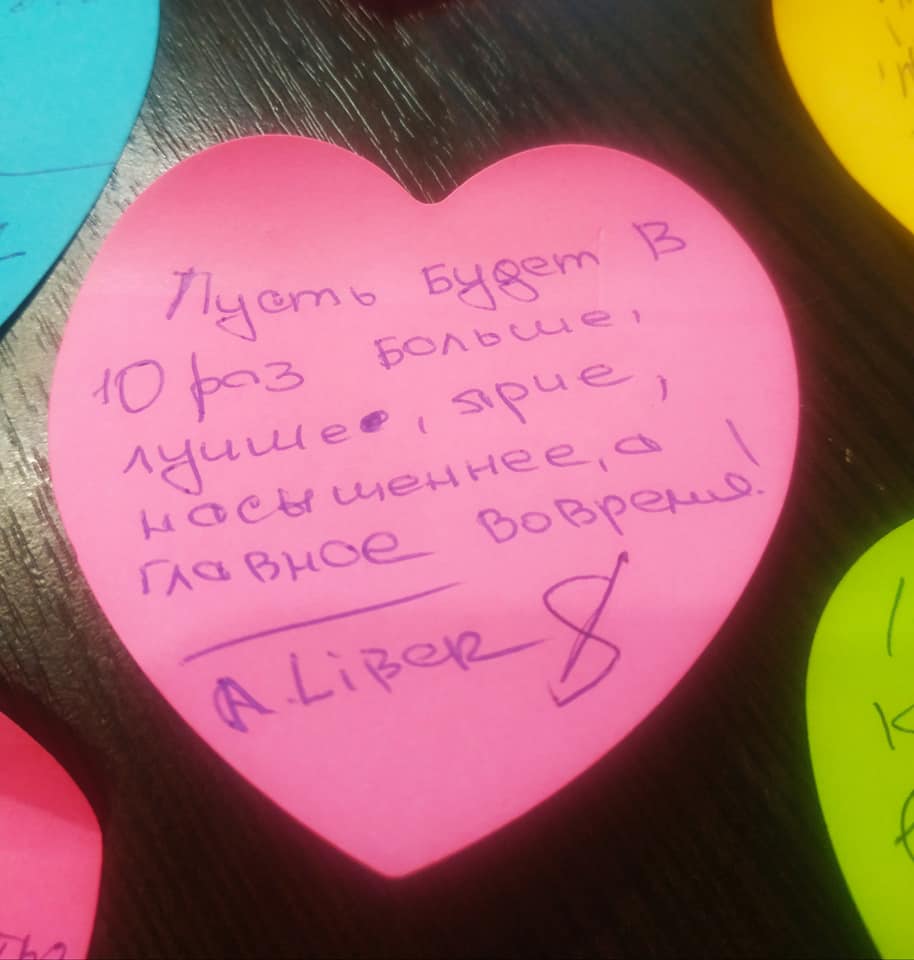 Пусть будет в
10 раз больше,
лучше, ярие,
насыщеннее, а
главное вовремя!
A. Liber